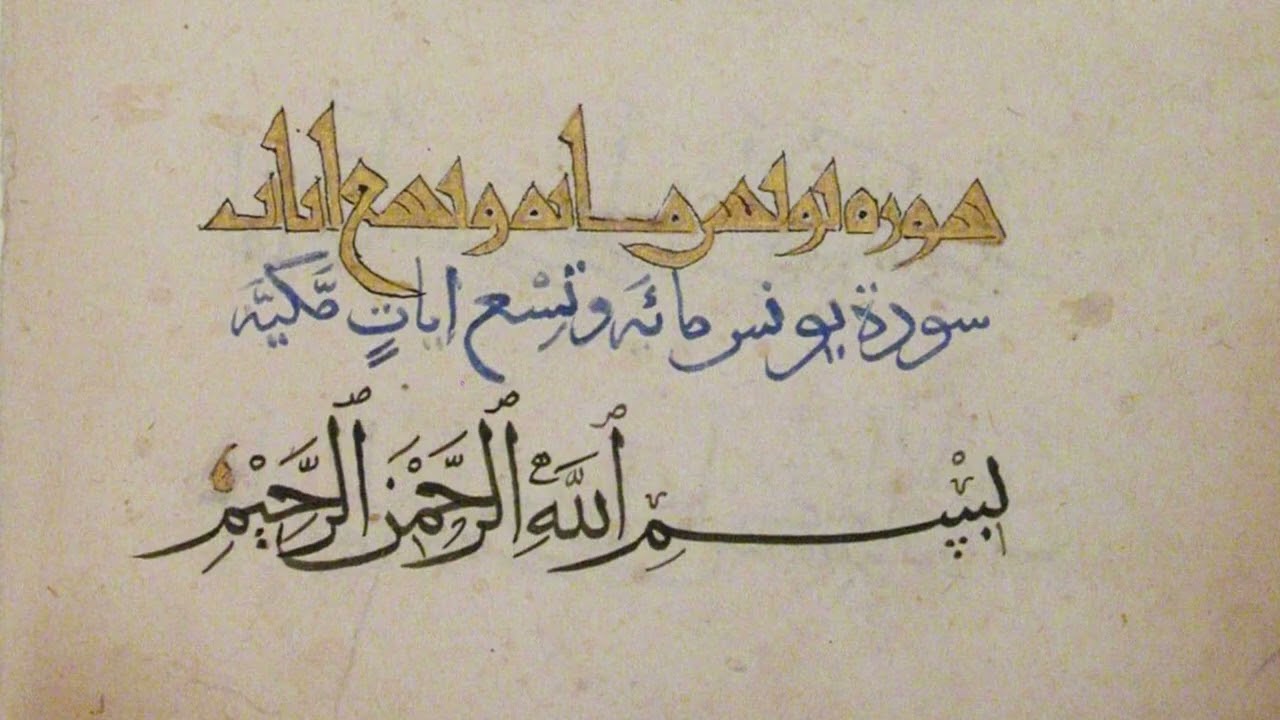 سوره يونس مائه وتسع ايات
سورة يونس مائه وتسْع اياتٍ مَّكيَّه
بِسْمِ ٱللَّهِ ٱلرَّحْمَٰنِ ٱلرَّحِيْمِ